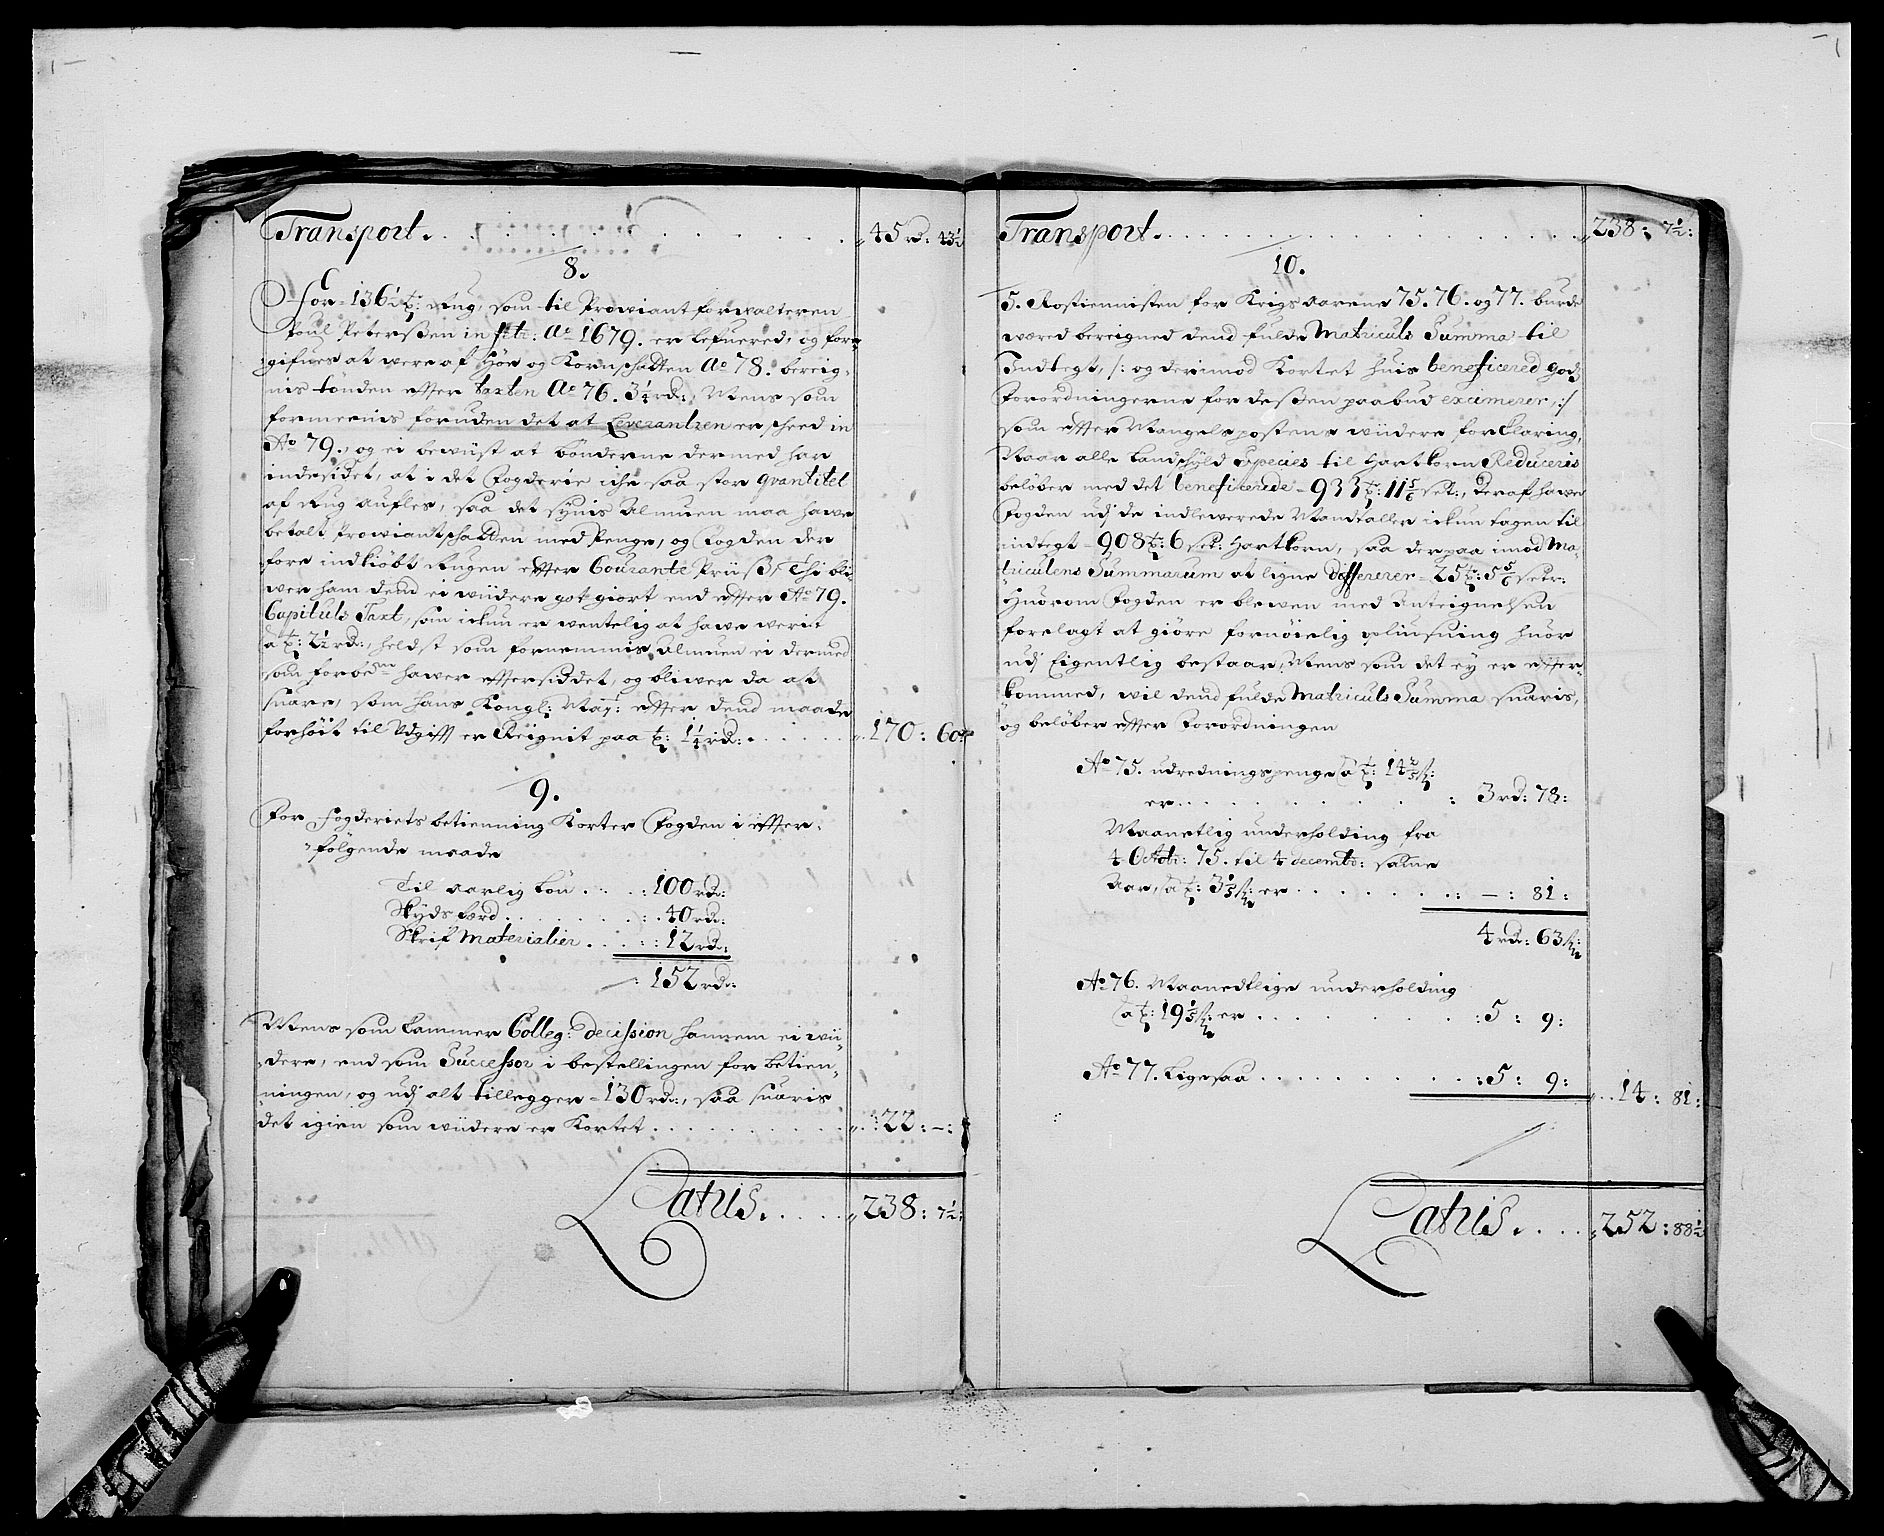 Transport. . . . . . . . . . . „45 rd: 43½
8.
For 136½ t: Rug, som til Proviantforwalteren
Poul Peterssen in febr: Ao 1679. er lefuered, og fore„
gifues at were af Høe og Kornschatten Ao 78. bereig„
nis tønden effter taxten Ao 76. 3¼ rd:, Mens som
formeenis foruden det at Leverantzen er scheed in
Ao 79., og ei bewist at bønderne dermed har
indesidet, at i det Fogderie iche saa stor qvantitet
af Rug aufles, saa det synis Almuen maa hawe
betalt Proviantschatten med Penge, og Fogden der
fore indkiøbt Rugen effter Courante Priiss, Thi bli„
wer ham dend ei widere got giort end effter Ao 79.
Capituls Taxt, som ickun er wentelig at hawe werit
a t: 2½ rd:, helst som fornemmis Almuen ei dermed
som forbemte hawer efftersiddet, og bliwer da at
suare, som hans Kongl: May: effter dend maade
forhøit til Udgifft er Reignit paa t: 1¼ rd: . . . . . „170: 60
9.
For Fogderiets betienning Korter Fogden i effter„
følgende maade
Til aarlig Løn . . . . : 100 rd:
Skyds færd . . . . . . : 40 rd:
Skrif Materialier . . . . : 12 rd:
: 152 rd:
Mens som Cammer Colleg: decission hannem ei wii„
dere, end som Successor i bestellingen for betien„
ningen, og udj alt tillegger 130 rd:, saa suaris
det igien som wiidere er Kortet . . . . . . . . „ :22: –:
Latris. . . . . „238: 7½:
Transport. . . . . . . . . . . „238: 7½:
10.
5. Rostiennisten for Krigsaarene 75. 76. og 77. burde
wæred bereigned dend fulde Matriculs Summa til
Indtegt, /: og derimod Kortet huis beneficered gods
Forordningerne for dessen paabud examerer, :/
som effter Mangelspostens wiidere forklaring,
Naar alle Landschyld Species til Hartkorn Reduceris
beløber med det beneficerede 933 t: 11⅚ set:, Deraf hawer
Fogden udj de indlewerede Mandtaller ickun tagen til
indtegt 908 t: 6 set: Hartkorn, saa derpaa imod Ma„
triculens Summarum at ligne differerer 25 t: 5⅚ setr:
Huorom Fogden er blewen med Anteignelsen
forelagt at giøre fornøielig opliusning huor
udj Eigentlig bestaar, Mens som det ey er effter„
kommed, wil dend fulde Matriculs Summa suaris,
og beløber effter Forordningen
Ao 75. udrednings penge a t: 14⅖ s:
er . . . . . . . . . . : 3 rd: 78:
Maanetlig underholding fra
4 Octobr: 75. til 4 decembr: samme
Aar, a t: 3⅕ s: er . . . . . . . : –: 81:
4 rd: 63 s:
Ao 76. Maanedtlige underholding
a t: 19⅕ s: er . . . . . . . . : 5: 9:
Ao 77. Ligesaa . . . . . . . . : 5: 9:
„ . . 14: 81:
Latris. . . . „252: 88½